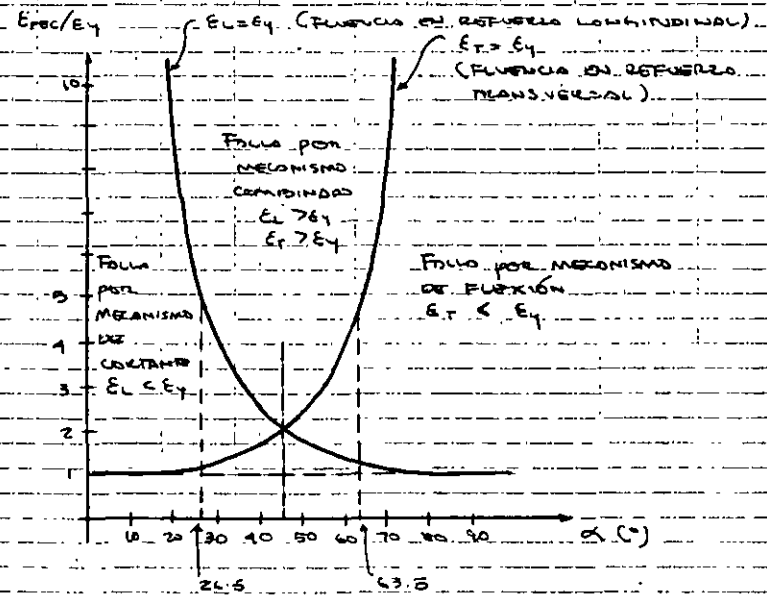 εPEC/εy
εL=εy (FLUENCIA EN REFUERZO LONGINDINAL)
εT=εy
(FLUENCIA EN REFUERZO
TRANSVERSAL)
10
FALLA POR
MECANISMO
COMBINADO
εL >εy
εT >εy
FALLA
POR
MECANISMO
DE
CORTANTE
εL < εy
FALLA POR MECANISMO
DE FLEXIÓN
εT < εy
5
4
3
2
1
10 20 30 40 50 60 70 80 90 α (°)
26.5
63.5